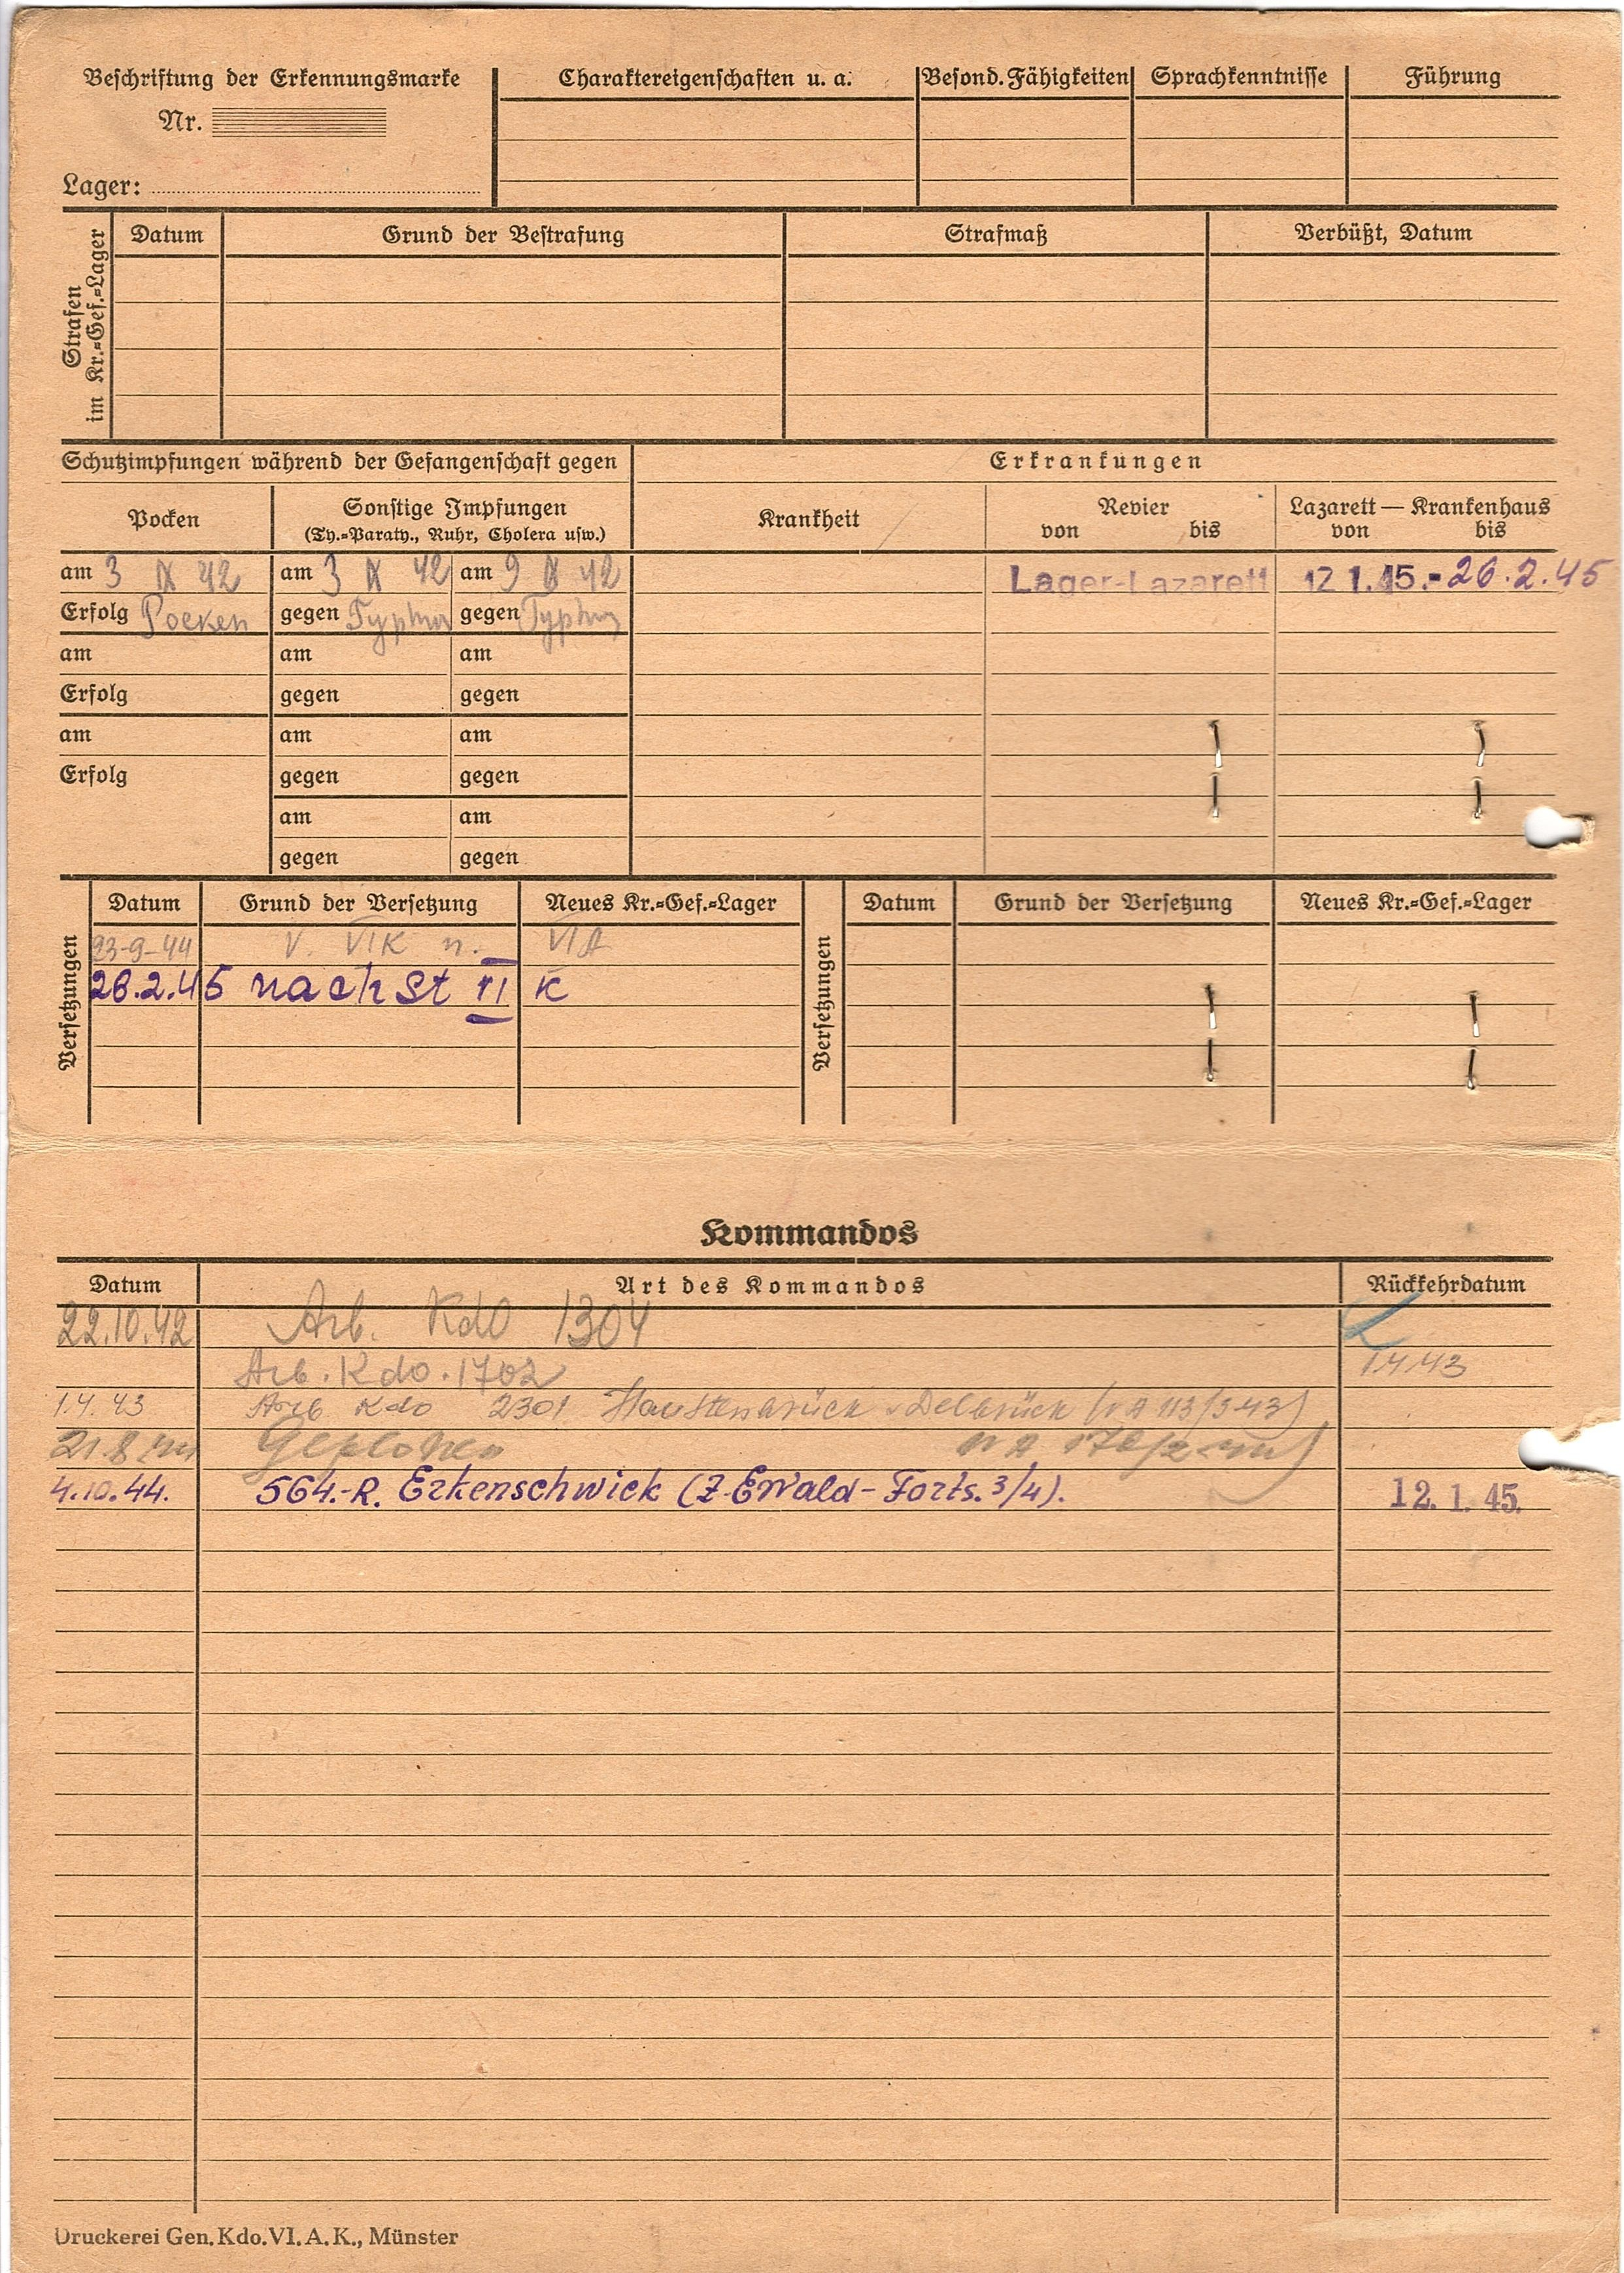 Beschriftung der Erkennungsmarke
Nr.
Lager:
Charaktereigenschaften u. a.
Besond. Fähigkeiten
Sprachkenntnisse
Führung
Strafen
im Kr.=Gef.=Lager
Datum
Grund der Bestrafung
Strafmaß
Verbüßt, Datum
Schutzimpfungen während der Gefangenschaft gegen
Erkrankungen
Pocken
Sonstige Impfungen
(Ty.=Paraty., Ruhr, Cholera usw.)
Krankheit
Revier
von bis
Lazarett — Krankenhaus
von bis
am 3 IX 42 am 3 IX 42 am 9 IX 42
Lager-Lazarett 12 1.45.-26.2.45
Erfolg Pocken gegen Typhus gegen Typhus
am am am
Erfolg gegen gegen
am am am
Erfolg gegen gegen
am am
gegen gegen
Versetzungen
Datum Grund der Versetzung Neues Kr.=Gef.=Lager
23-9-44 V. VIK n. VIA
26.2.45 nach St VI K
Versetzungen
Datum Grund der Versetzung Neues Kr.=Gef.=Lager
Kommandos
Datum Art des Kommandos Rückkehrdatum
22.10.42 Arb. Kdo 1304
Arb. Kdo. 1702 1.4.43
1.4.43 Arb Kdo 2301 Haustenbrück Delbrück (VA 113/3 43)
21.8
4.10.44. 564.-R. Erkenschwick (Z. Ewald-Forts. 3/4). 12. 1. 45.
Druckerei Gen. Kdo. VI. A. K., Münster